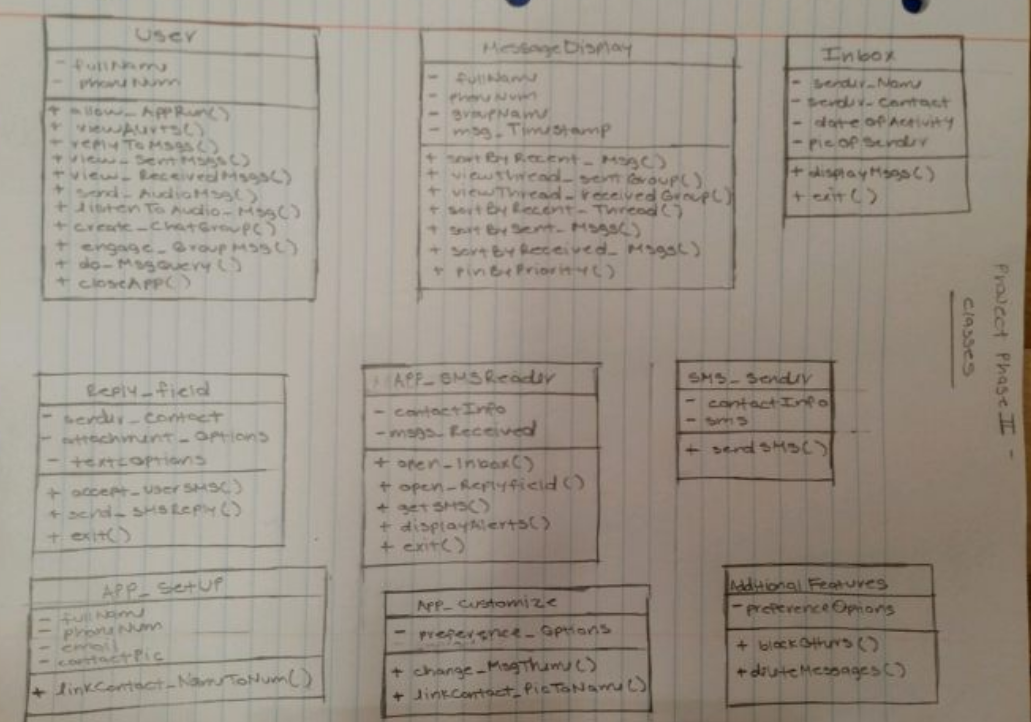 User
- fullName
- phoneNum
+ allow_AppRun()
+ viewAlerts()
+ replyToMsgs()
+ view_SentMsgs()
+ view_ReceivedMsgs()
+ send_AudioMsg()
+ listenToAudio_Msg()
+ create_ChatGroup()
+ engage_GroupMsgs()
+ do_MsgQuery()
+ closeApp()
MessageDisplay
- fullName
- phoneNum
- groupName
- msg_Timestamp
+ sortByRecent_Msg()
+ viewThread_sentGroup()
+ viewThread_receivedGroup()
+ sortByRecent_Thread()
+ sortBySent_Msgs()
+ sortByReceived_Msgs()
+ pinByPriority()
Inbox
- sender_Name
- sender_Contact
- dateOfActivity
- picOfSender
+ displayMsgs()
+ exit()
Project Phase II -
Classes
Reply_field
- sender_Contact
- attachment_Options
- textOptions
+ accept_userSMS()
+ send_SMSReply()
+ exit()
APP_SMSReader
- contactInfo
- msgs_Received
+ open_Inbox()
+ open_Replyfield()
+ getSMS()
+ displayAlerts()
+ exit()
SMS_Sender
- contactInfo
- sms
+ sendSMS()
APP_SetUP
- fullName
- phoneNum
- email
- contactPic
+ linkContact_NameToNum()
App_Customize
- preference_Options
+ change_MsgTheme()
+ linkContact_PicToName()
Additional Features
- preferenceOptions
+ blockOthers()
+ deleteMessages()